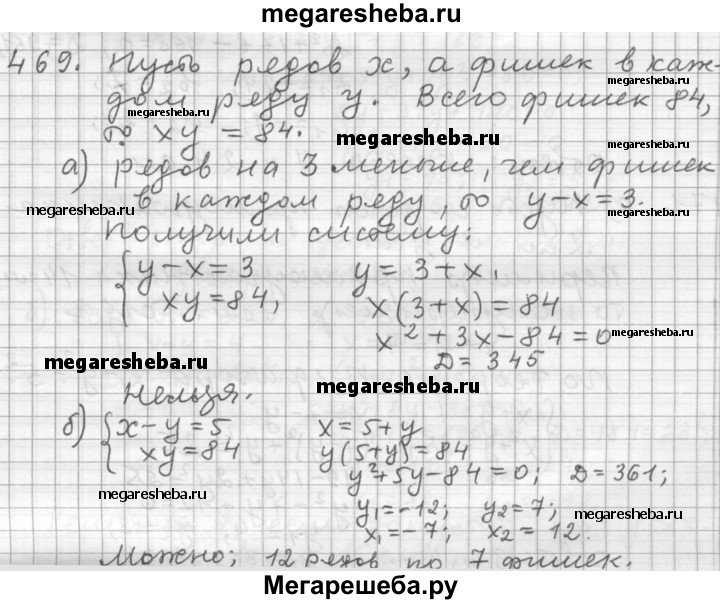 megaresheba.ru
469. Пусть рядов x, а фишек в каж-
дом ряду y. Всего фишек 84,
megaresheba.ru
megaresheba.ru
то xy = 84.
megaresheba.ru
а) рядов на 3 меньше, чем фишек
в каждом ряду, то y-x=3.
megaresheba.ru
megaresheba.ru
Получили систему:
{ y-x=3 y=3+x,
xy=84, x(3+x)=84
x²+3x-84=0
megaresheba.ru
D=345
megaresheba.ru
Нельзя.
megaresheba.ru
б) { x-y=5 x=5+y
xy=84 y(5+y)=84
y²+5y-84=0; D=361;
megaresheba.ru
y₁=-12; y₂=7;
megaresheba.ru
x₁=-7; x₂=12.
Можно; 12 рядов по 7 фишек.
Мегарешеба.ру